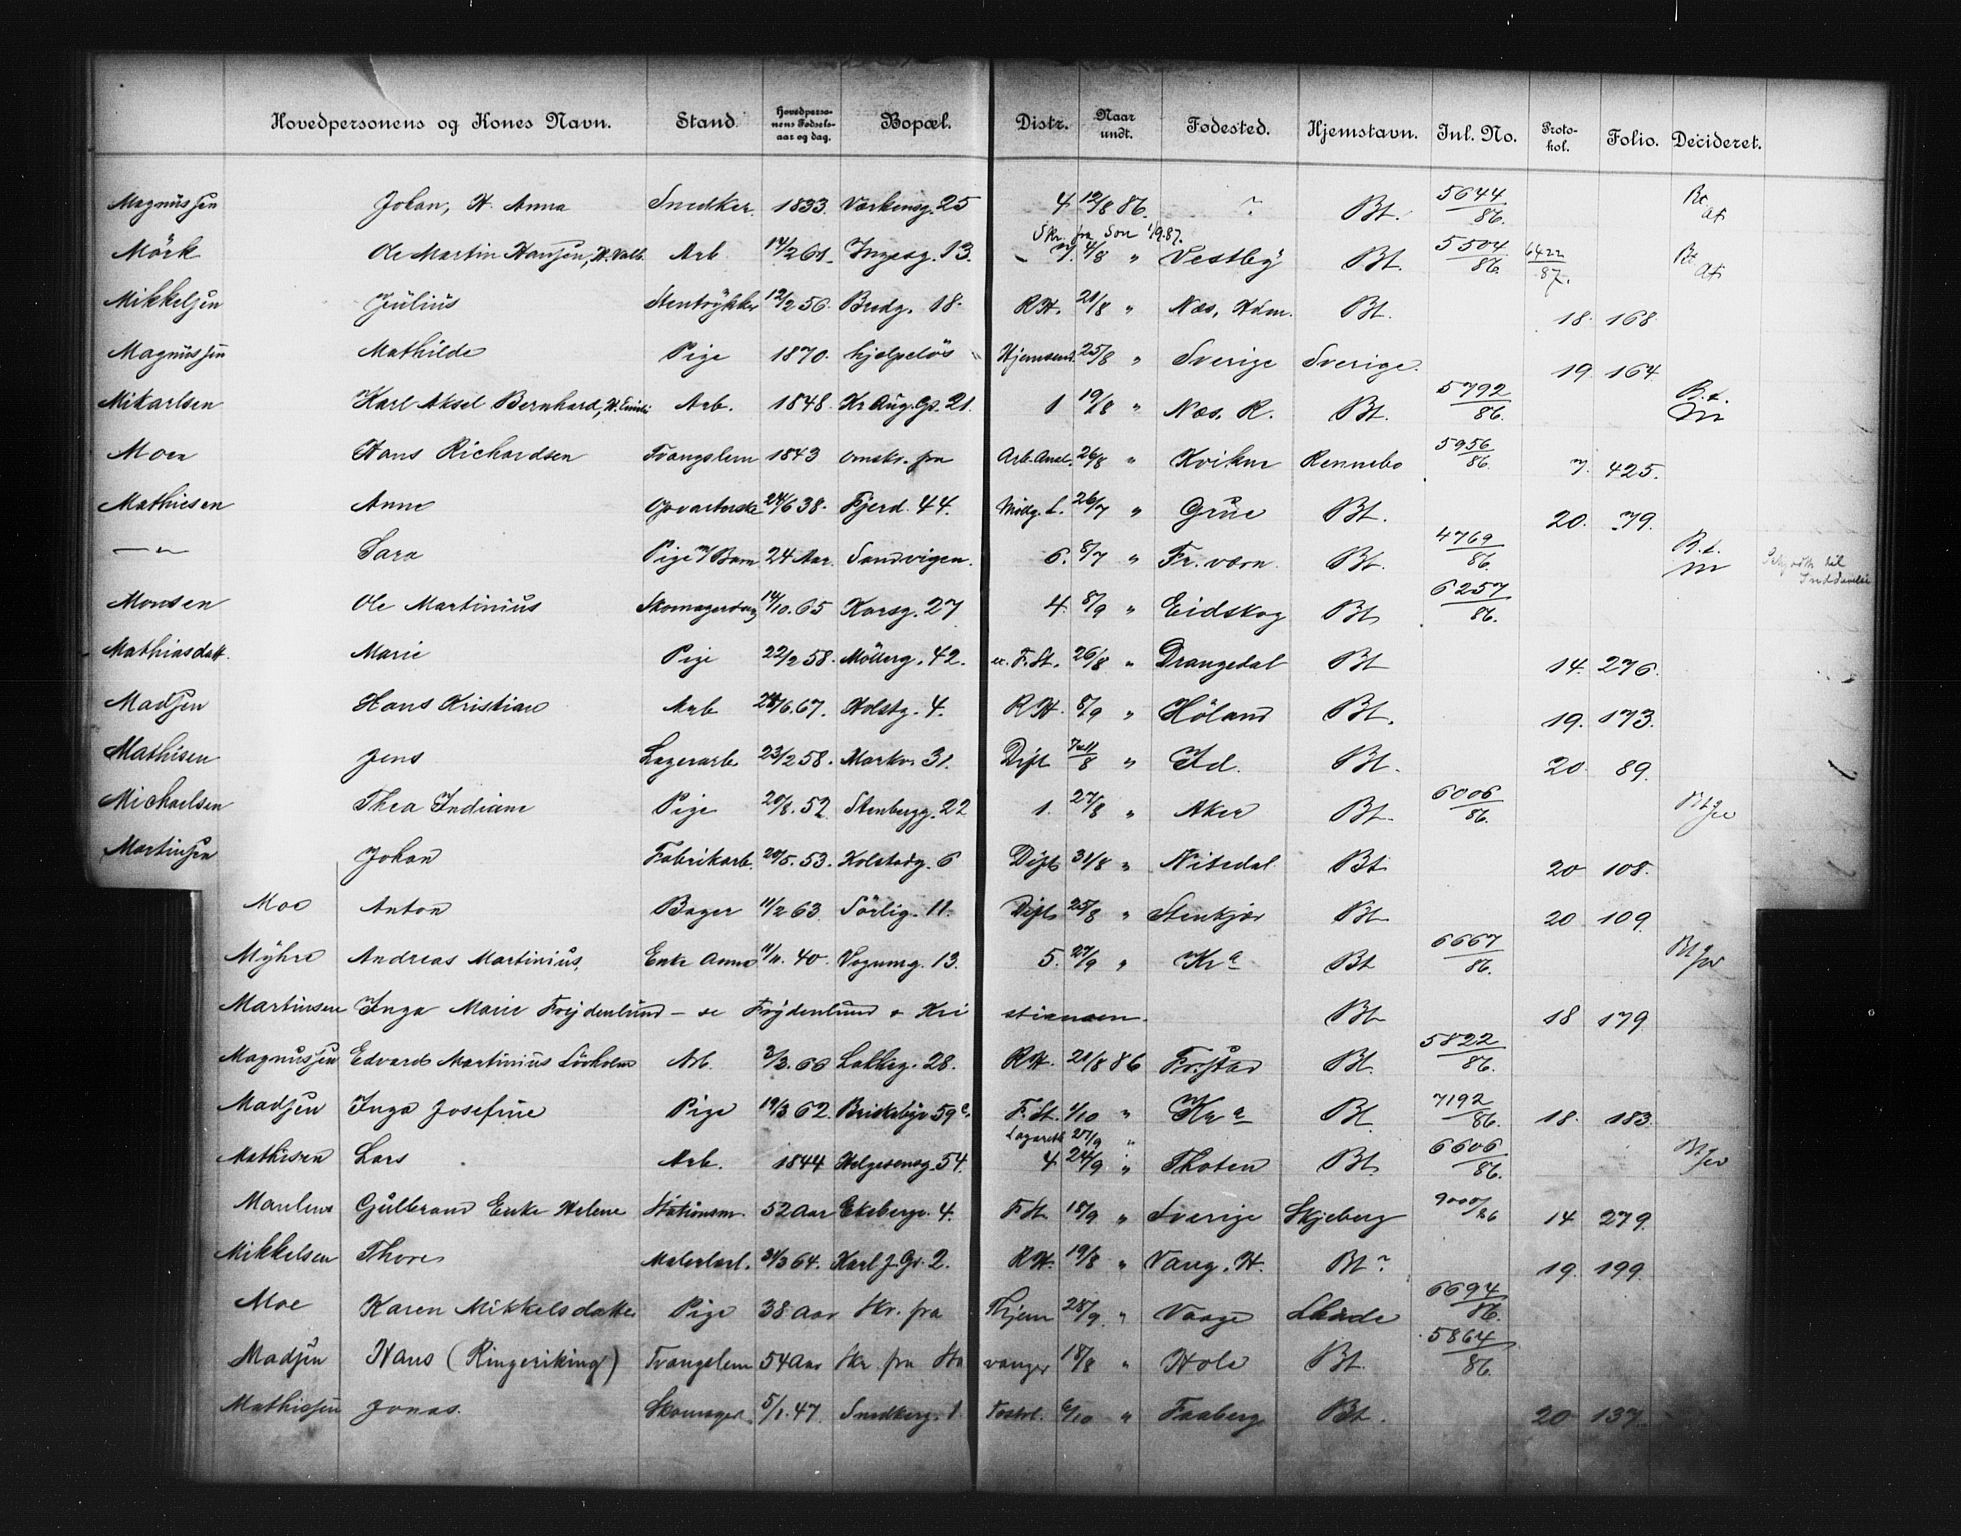 Hovedpersonens og Kones Navn. Stand. Hovedpersonens Fødselsaar og dag. Bopæl. Distr. Naar undt. Fødested. Hjemstavn. Inl. No. Protokol. Folio. Decideret.
Magnussen Johan, H. Anna Snedker 1833. Verkensg. 25 4 12/8 86. ? Bt. 5644/86.
Skr. fra Son 1/9 87.
Mörk Ole Martin Hansen, H. Valb. Arb 14/2 61. Ingesg. 13. 4/8 " Vestby Bt. 5504/86. 6422/87.
Mikkelsen Julius 12/2 56. Bredg. 18. RH. 21/8 " Næs, Hdm. Bt. 18. 168
Magnussen Mathilde Pige 1870. hjelpeløs 25/8 " Sverige Sverige. 19. 164
Mikarlsen Karl Aksel Bernhard, H. Emili Arb. 1848. Kr Aug. Gs. 21. 1 19/8 " Næs. R. Bt. 5792/86. B.t.
Moen Hans Richardsen Tvangslem 1843 omskr. fra Arb. Anst. 26/8 " Kvikne Rennebo 5956/86. 7. 425.
Mathiesen Anne Opvarterske 24/6 38. Fjerd. 44. 26/7 " Grue Bt. 20. 79.
—"— Sara Pige m/ Barn 24 Aar. Sandvigen. 6. 8/7 " Fr. værn Bt. 4769/86. B.t.
Monsen Ole Martinius 14/10. 65 Korsg. 27 4. 8/9 " Eidskog Bt. 6257/86.
Mathiasdatt. Marie Pige 22/2 58. Möllerg. 42. F. St. 26/8 " Drangedal Bt 14. 276.
Madsen Hans Kristian Arb 24/6. 67. Holstg. 4. RH. 8/9 " Höland Bt. 19. 173.
Mathisen Jens Lagerarb. 23/2 58. Markv. 31. Dift " Id. Bt. 20. 89.
Michaelsen Thea Indiane Pige 20/8. 52 Stenbergg. 22 1. 27/8 " Aker Bt. 6006/86.
Martinsen Johan Fabrikarb. 20/5. 53. Kolstadg. 6 Dift 31/8 " Nitedal Bt 20 108.
Moe Anton Bager 11/2 63. Sörlig. 11. Dift 25/8 " Stenkjær Bt 20 109.
Myhre Andreas Martinius, Enke Anna 11/11. 40. Vognmg. 13. 5. 27/9 " Kra Bt 6667/86.
Martinsen Inga Marie Frydenlund – se Frydenlund & Kri stiansen. Bt 18 179.
Magnussen Edvard Martinius Lövholm Arb. 3/3. 66 Lakkeg. 28. RH. 21/8 86 Bt. 5822/86.
Madsen Inga Josefine Pige 19/3 62. Briskebyv 59 F. St. 1/10 " Kra Bt 7192/86. 18. 183.
Lazareth 27/9 "
Mathisen Lars Arb. 1844 Helgesensg. 54. 4 24/9 " Thoten Bt. 6606/86.
Gulbrand Enke Helene Stationsm. 52 Aar Ekebergv. 4. F. St. 18/9 " Sverige Skjeberg 9000/86 14 279.
Mikkelsen Thore Malerlærl. 31/3 64. Karl J. Gs. 2. RH. 19/8 " Vang. H. Bt ? 19. 199.
Moe Karen Mikkelsdatter Pige 38 Aar Skr. fra Thjem 28/9. " Vaage 6694/86.
Madsen Hans (Ringeriking) Tvangslem 54 Aar Skr. fra Sta vanger 18/8 " Hole Bt. 5864/86.
Mathissen Jonas. Skomager 5/1. 47. Snedkerg. 1. 6/10 " Faaberg Bt. 20 137